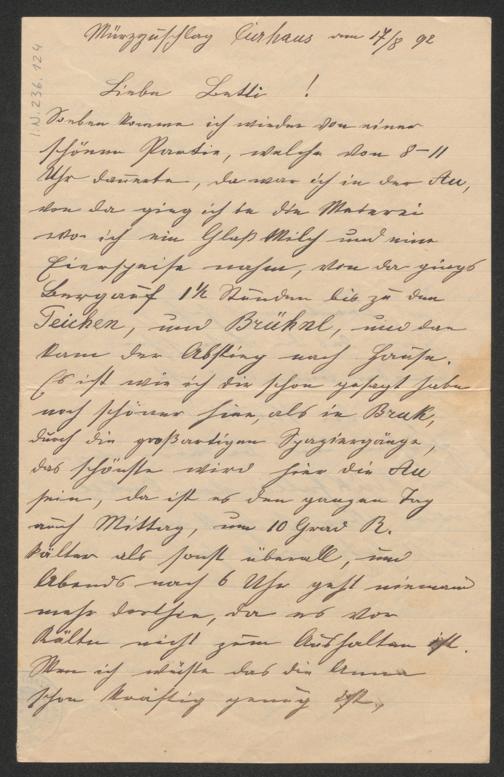 I.N. 236.124
Mürzzuschlag Curhaus am 17/8 92
Liebe Betti !
Soeben komme ich wieder von einer
schönen Partie, welche von 8-11
Uhr dauerte, da war ich in der Au,
von da ging ich in die Meierei
wo ich ein Glaß Milch und eine
Eierspeise nahm, von da gings
Bergauf 1½ Stunden bis zu den
Teichen, und Brühnl, und dan
kam der Abstieg nach Hause.
Es ist wie ich dir schon gesagt habe
noch schöner hier, als in Bruk,
durch die großartigen Spaziergänge,
das schönste wird hier die Au
sein, da ist es den ganzen Tag
auch Mittag, um 10 Grad R.
kälter als sonst überall, und
Abends nach 6 Uhr geht niemand
mehr dorthin, da es vor
Kälte nicht zum Aushalten ist.
Wen ich wüste das die Anna
schon kräftig genug ist,